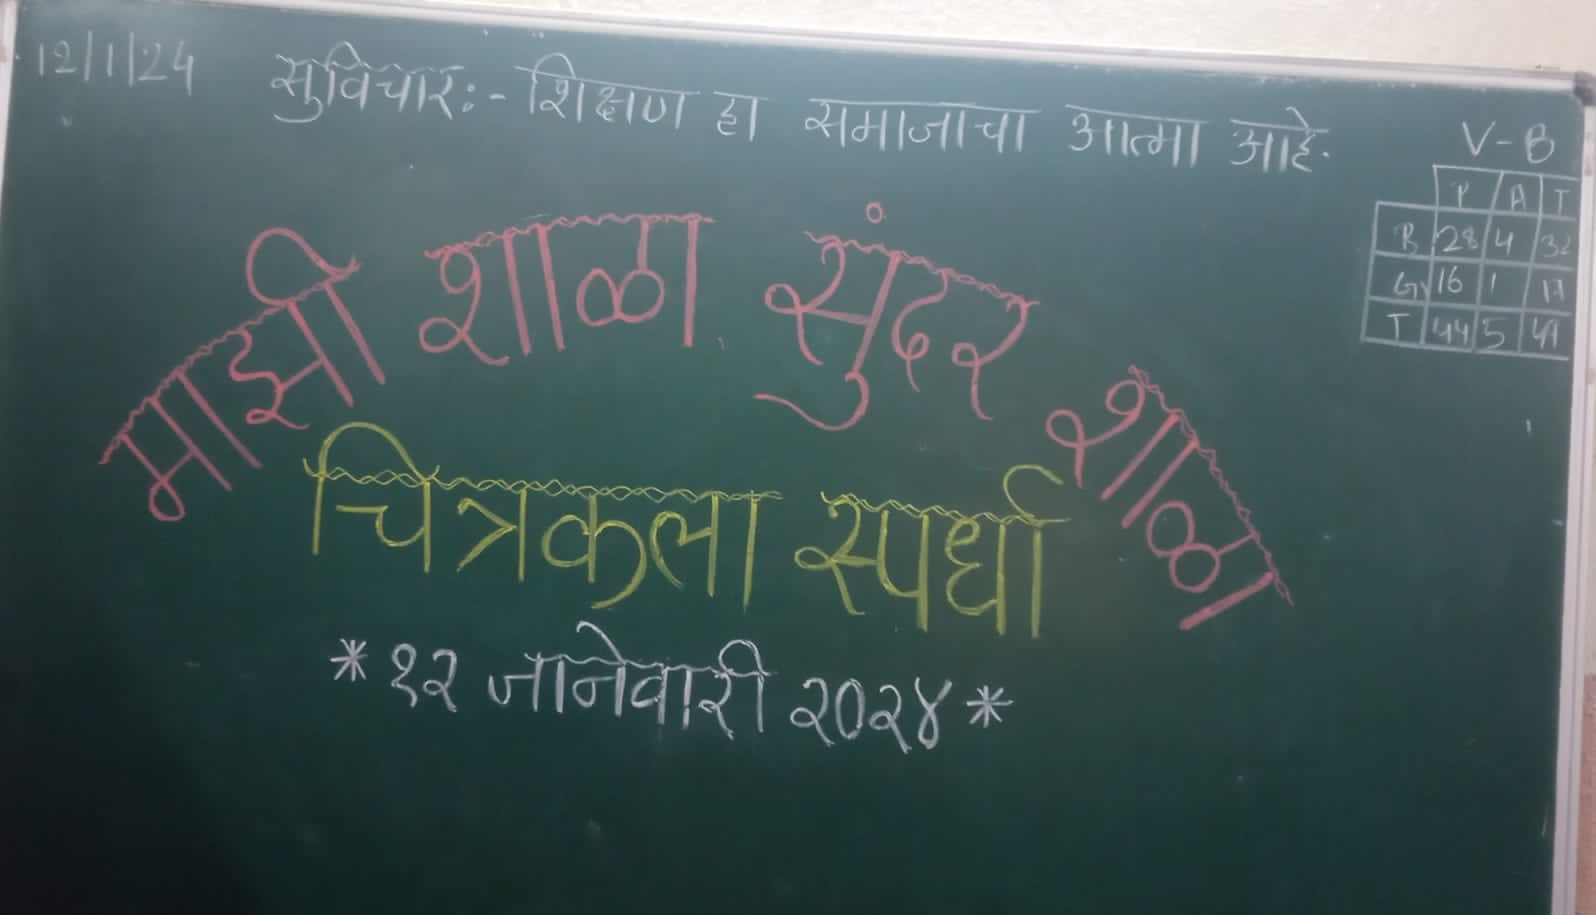 12/1/24 सुविचार:- शिक्षण हा समाजाचा आत्मा आहे.
V-B
P A T
B 28 4 32
G 16 1 17
T 44 5 49
माझी शाळा सुंदर शाळा
चित्रकला स्पर्धा
* १२ जानेवारी २०२४ *